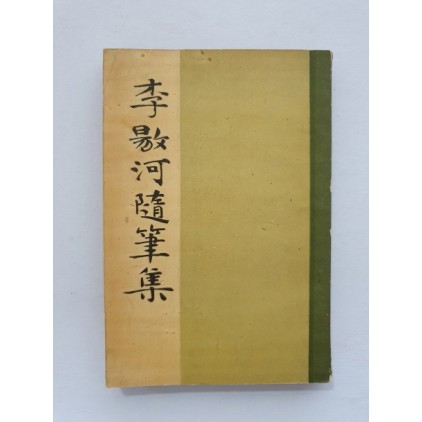 李敭河隨筆集